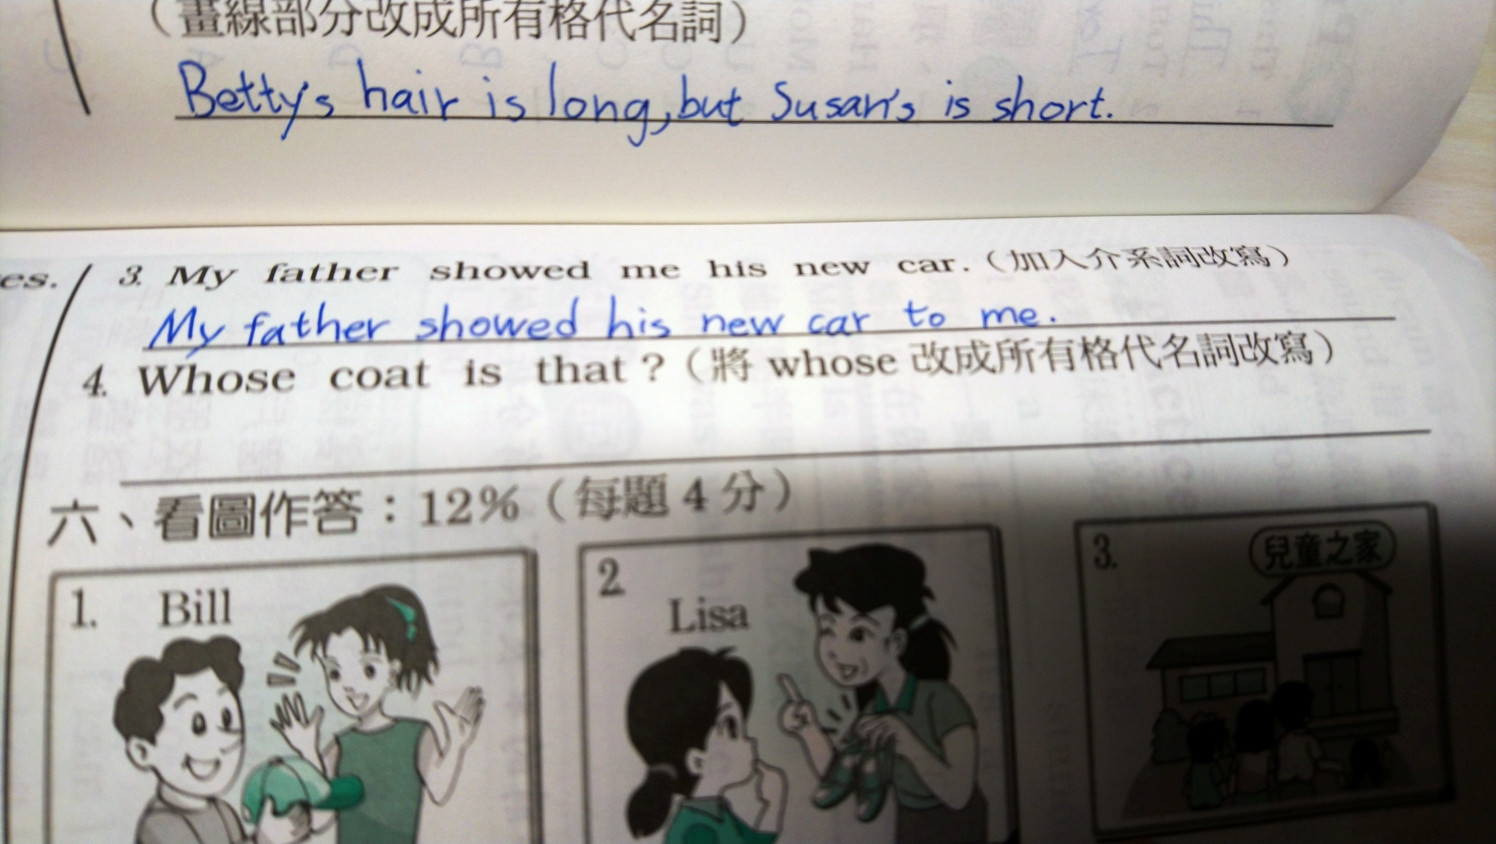 (畫線部分改成所有格代名詞)
Betty's hair is long, but Susan's is short.
es. / 3. My father showed me his new car.(加入介系詞改寫)
My father showed his new car to me.
4. Whose coat is that?(將 whose 改成所有格代名詞改寫)
六、看圖作答:12%(每題 4 分)
1. Bill
2. Lisa
3. 兒童之家